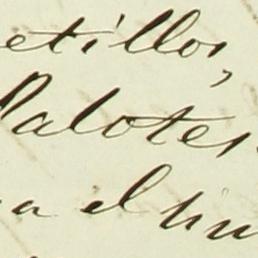 etillos,
Palotes
a el hu